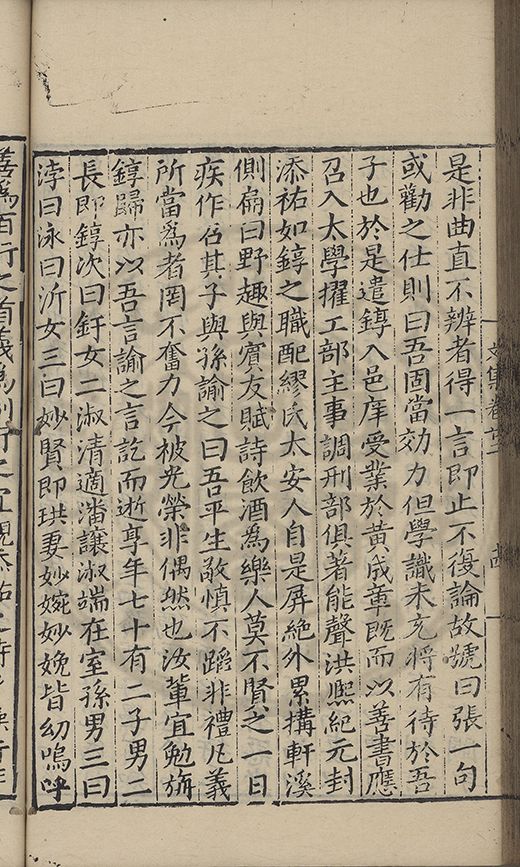 是非曲直不辨者得一言即止不復論故號曰張一句
或勸之仕則曰吾固當効力但學識未充將有待於吾
子也於是遣錞入邑庠受業於黃成章既而以善書應
召入太學擢工部主事調刑部俱著能聲洪熙紀元封
添祐如錞之職配繆氏太安人自是屏絕外累搆軒溪
側扁曰野趣與賓友賦詩飲酒爲樂人莫不賢之一日
疾作召其子與孫諭之曰吾平生敬慎不蹈非禮凡義
所當爲者罔不奮力今被光榮非偶然也汝輩宜勉旃
錞歸亦以吾言諭之言訖而逝享年七十有二子男二
長即錞次曰釪女二淑清適潘讓淑端在室孫男三曰
浡曰泳曰沂女三曰妙賢即珙妻妙婉妙娩皆幼嗚呼
善爲百行之首義爲制行之宜觀添祐之
文集卷